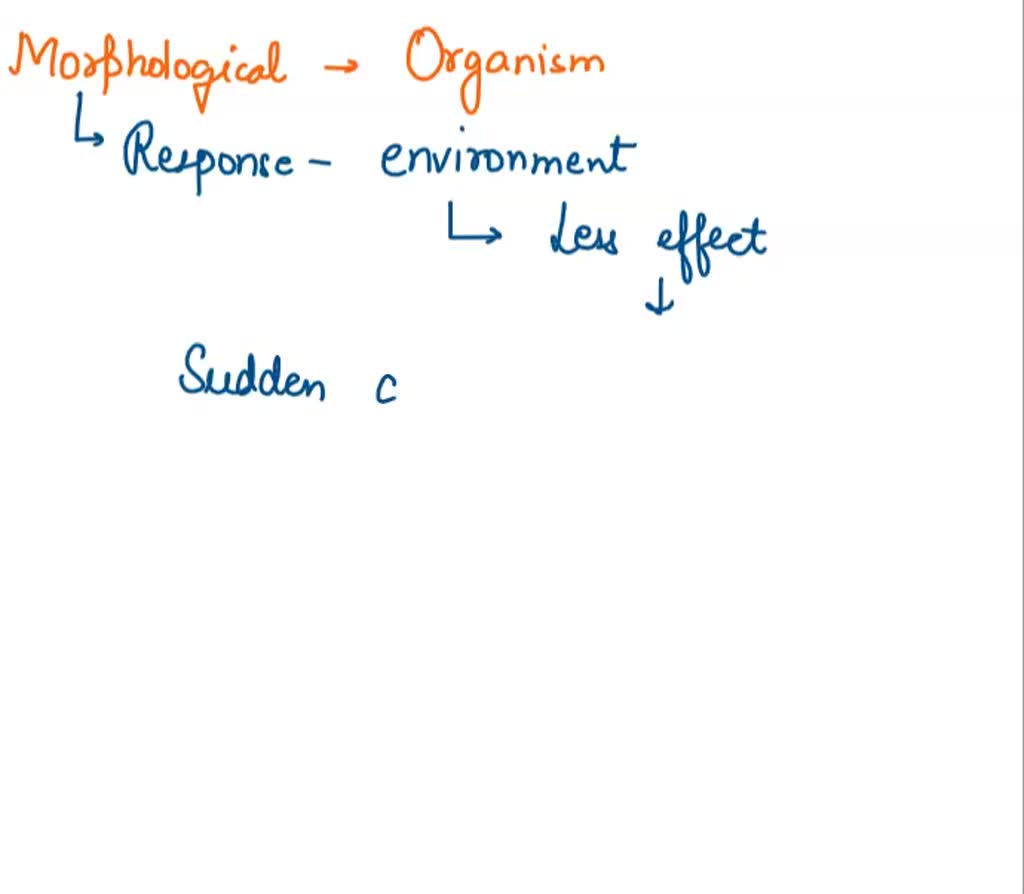 Morphological → Organism
↳ Response - environment
↳ Less effect
↓
Sudden c